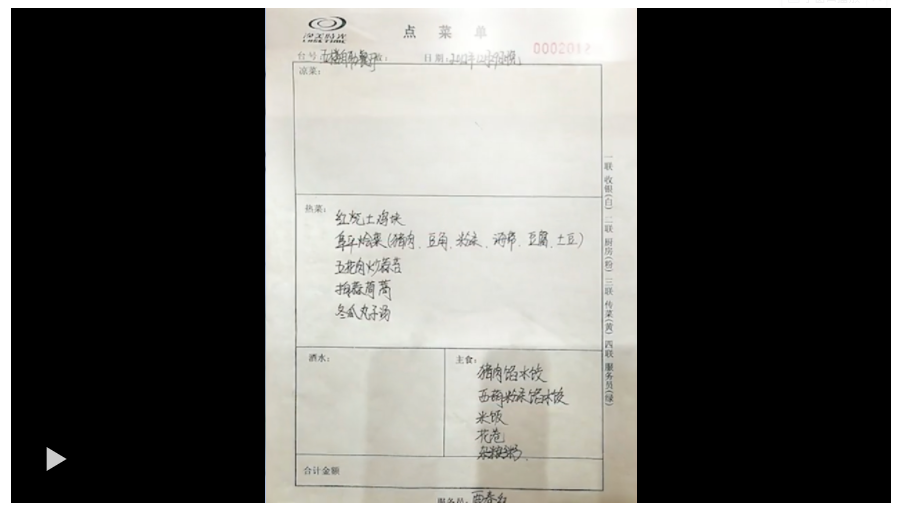 点 菜 单
台号
日期:
凉菜:
热菜:
红烧土鸡块
阜平烩菜(猪肉、豆角、粉条、海带、豆腐、土豆)
五花肉炒蒜苔
拌蒜茼蒿
冬瓜丸子汤
酒水:
主食:
猪肉馅水饺
西葫粉条馅水饺
米饭
花卷
杂粮粥
合计金额
服务员:
一联 收银(白) 二联 厨房(粉) 三联 传菜(黄) 四联 服务员(绿)